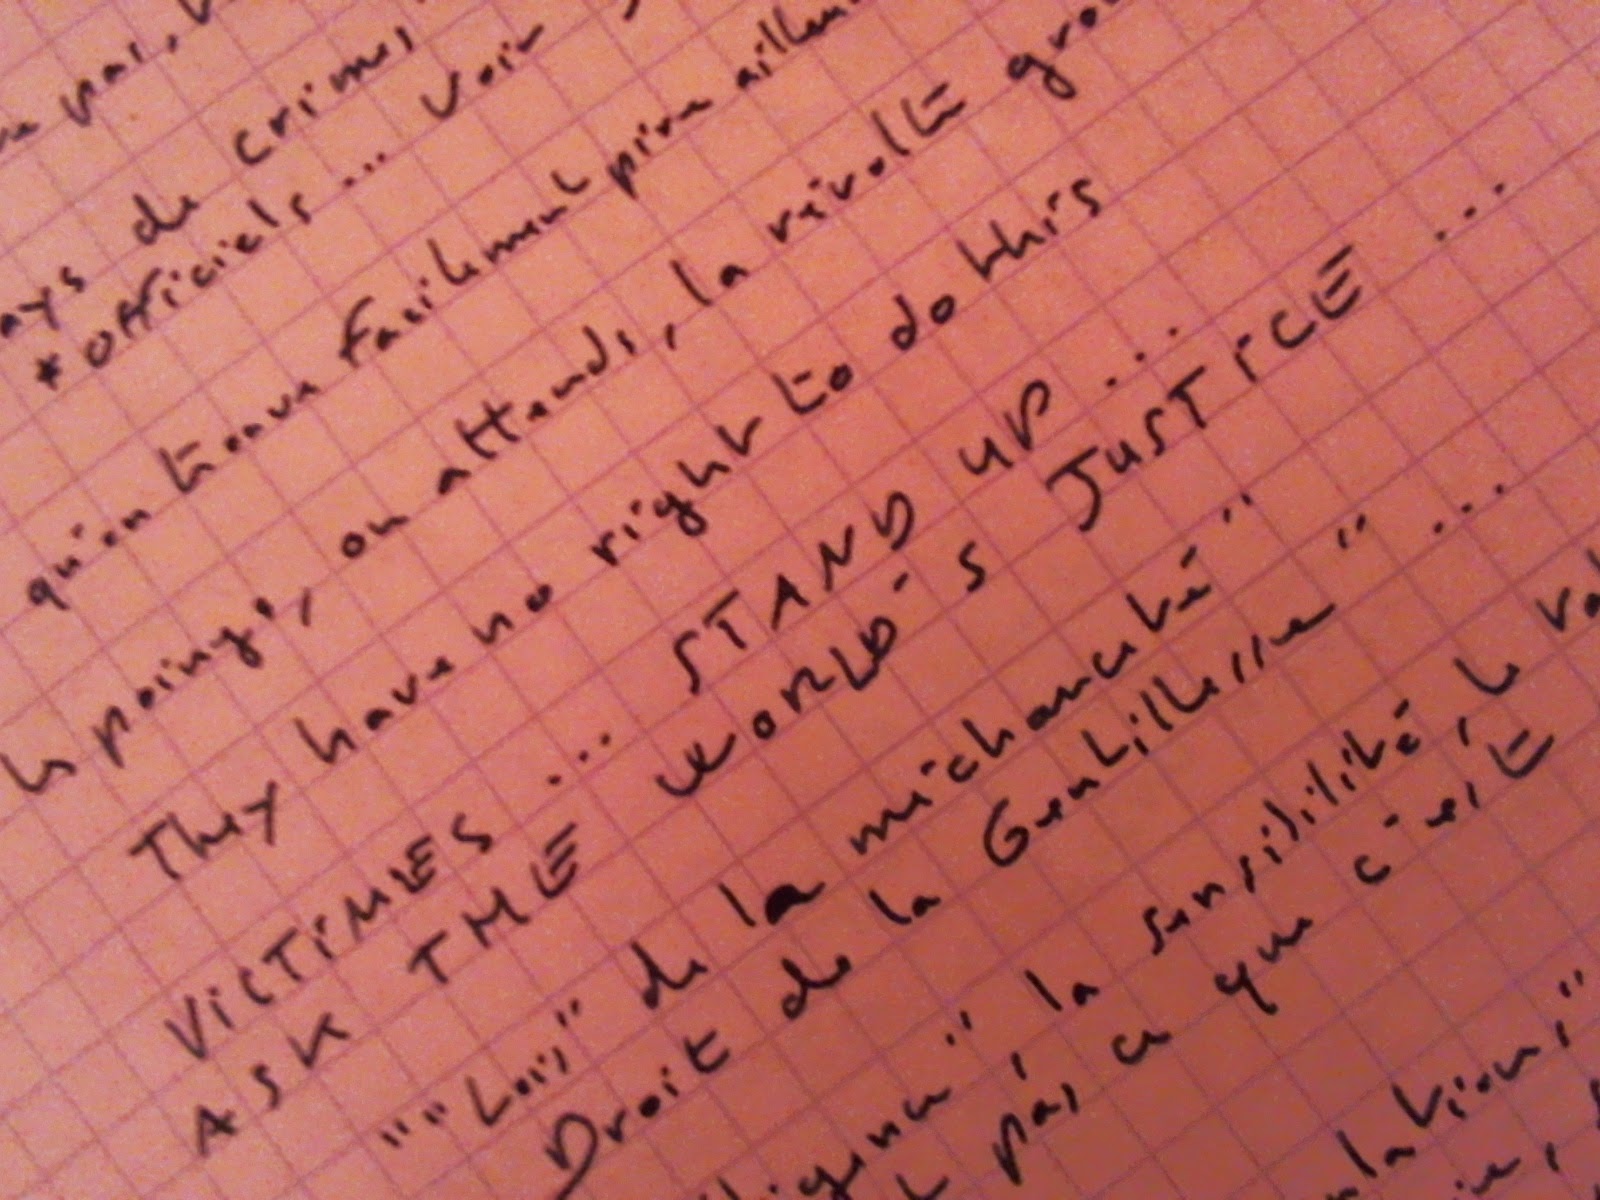 pas,
ays de crimes
*officiels... voir
qu'on trouve facilement pire ailleurs
poings, on attends, la révolte gro
They have no right to do this
VICTIMES... STAND UP...
ASK THE WORLD'S JUSTICE...
""Lois" de la méchanceté"
Droit de la Gentillesse"...
la sensibilité, le
pas ce que c'est
lations"